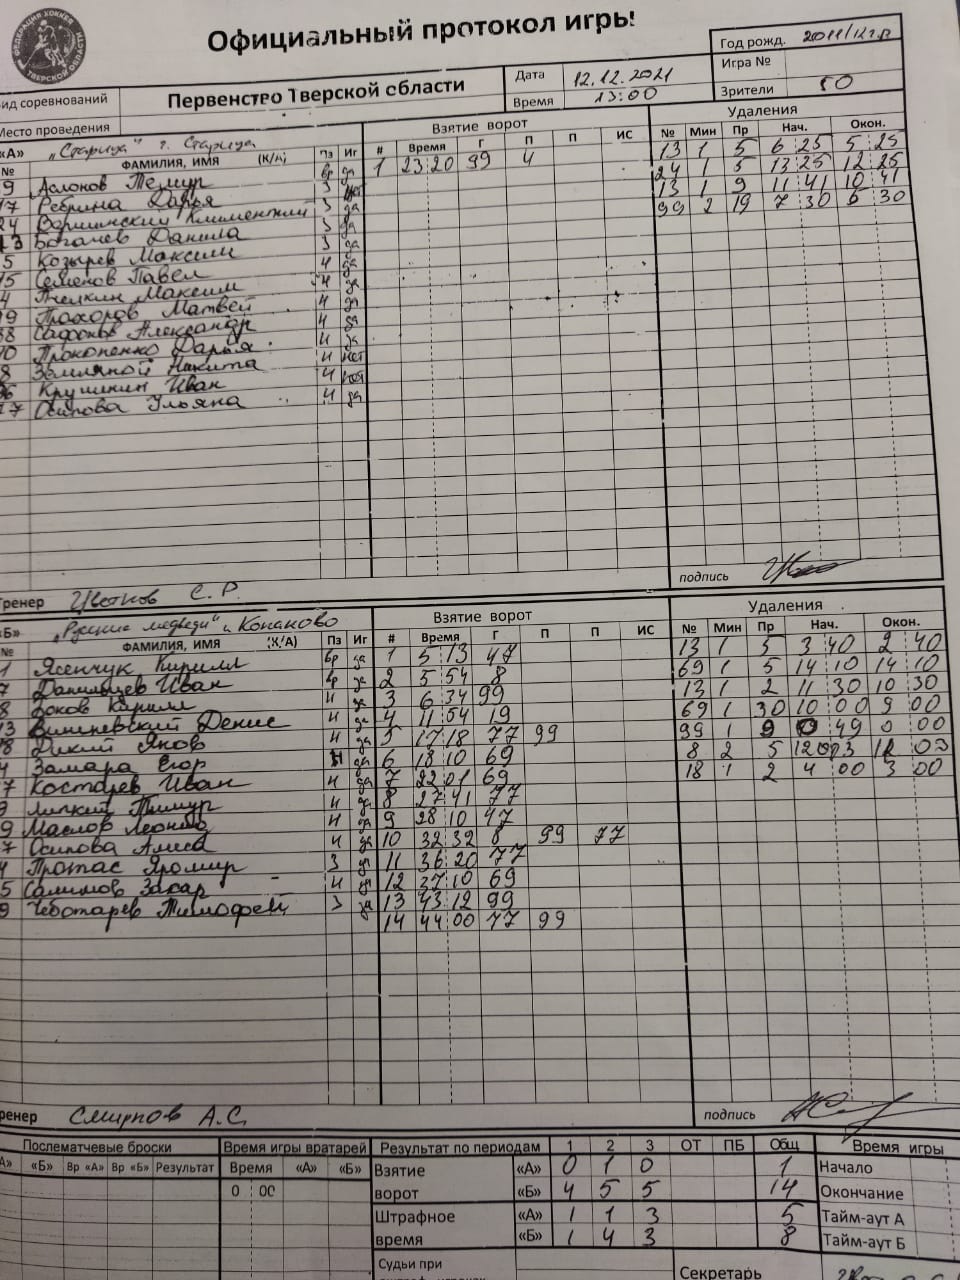 ФЕДЕРАЦИЯ ХОККЕЯ ТВЕРСКОЙ ОБЛАСТИ
Официальный протокол игры
Год рожд. 2011/12 г.р
Вид соревнований Первенство Тверской области Дата 12.12.2021 Игра №
Место проведения Время 13:00 Зрители 50
«А» „Старица" г. Старица Взятие ворот Удаления
№ ФАМИЛИЯ, ИМЯ (К/А) Пз Иг # Время Г П П ИС № Мин Пр Нач. Окон.
9 Аслоков Темур вр да 1 23 20 99 4 13 1 5 6 25 5 25
17 Ребрина Дарья З нет 24 1 5 13 25 12 25
24 Варшинский Климентий З да 13 1 9 11 41 10 41
13 Богачев Данила З да 99 2 19 7 30 6 30
5 Козырев Максим З да
15 Семенов Павел Н да
4 Пчелкин Максим Н да
19 Прохоров Матвей Н да
88 Сафонов Александр Н да
10 Прокопенко Дарья Н да
8 Земляной Никита Н нет
Крушкин Иван Н нет
17 Осипова Ульяна Н да
Тренер Цветков С.Р. подпись
«Б» „Русские медведи" г. Конаково Взятие ворот Удаления
№ ФАМИЛИЯ, ИМЯ (К/А) Пз Иг # Время Г П П ИС № Мин Пр Нач. Окон.
1 Ясенчук Кирилл вр да 1 5 13 47 13 1 5 3 40 2 40
7 Данильцев Иван вр да 2 5 54 8 69 1 5 14 10 14 10
8 Зоков Кирилл Н да 3 6 34 99 13 1 2 11 30 10 30
13 Вишневский Денис Н да 4 11 54 19 69 1 30 10 00 9 00
18 Дикий Яков Н да 5 17 18 77 99 99 1 9 0 49 0 00
4 Замара Егор Н да 6 18 10 69 8 2 5 12 03 03
7 Костарев Иван Н да 7 22 01 69 18 1 2 4 00 3 00
9 Липкий Тимур Н да 8 27 41 77
9 Маслов Леонид Н да 9 28 10 47
7 Осипова Алиса Н да 10 32 32 8 99 77
4 Протас Яромир З да 11 36 20 77
5 Салимов Захар Н да 12 37 10 69
9 Чеботарев Тимофей З да 13 43 12 99
14 44 00 77 99
Тренер Смирнов А.С. подпись
Послематчевые броски Время игры вратарей Результат по периодам 1 2 3 ОТ ПБ Общ Время игры
«А» «Б» Вр «А» Вр «Б» Результат Время «А» «Б» Взятие «А» 0 1 0 1 Начало
0 00 ворот «Б» 4 5 5 14 Окончание
Штрафное «А» 1 1 3 5 Тайм-аут А
время «Б» 1 4 3 8 Тайм-аут Б
Судьи при Секретарь